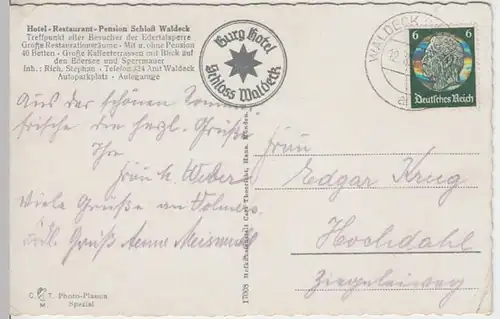 Hotel-Restaurant-Pension Schloß Waldeck
Treffpunkt aller Besucher der Edertalsperre
Große Restaurationsräume - Mit u. ohne Pension
40 Betten - Große Kaffeeterrassen mit Blick auf
den Edersee und Sperrmauer
Inh.: Rich. Stephan - Telefon 324 Amt Waldeck
Autoparkplatz - Autogarage
Burg Hotel
Schloss Waldeck
WALDECK
6 6
Deutsches Reich
Aus der schönen Sommer
frische die herzl. Grüße
Ihre
Frau H. Weber
Viele Grüße an
Gruß Aenne
Frau
Edgar Krug
Hochdahl
Ziegeleiweg
17008 Carl Thoericht, Hann. Münden.
C. T. Photo-Plasma
M Spezial